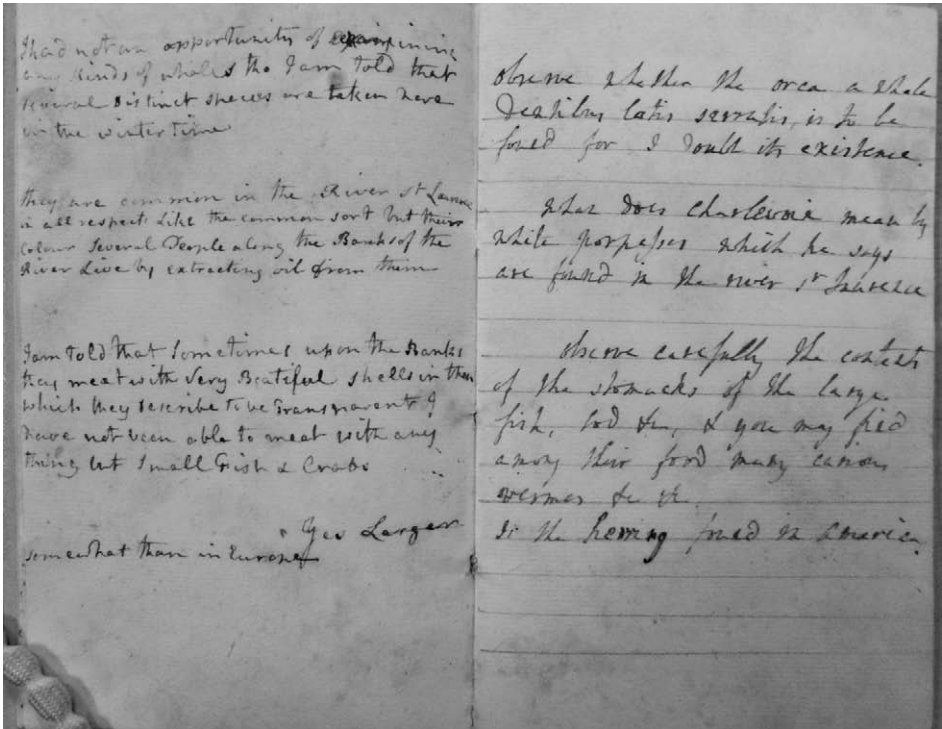 I had not an opportunity of examining
any kinds of whales tho I am told that
several Distinct species are taken here
in the winter time
they are common in the River St Laurence
in all respect Like the common sort but their
colour Several People along the Banks of the
River Live by extracting oil from them
I am told that Sometimes upon the Banks
they meat with Very Beatiful shells in them
which they describe to be Transparent I
have not been able to meat with any
thing but Small Fish & Crabs
Yes Larger
somewhat than in Europe
observe whether the orca a whale
Dentibus latis serratis, is to be
found for I doubt its existence.
what does Charlevoix mean by
white porpesses which he says
are found in the river St Laurence
observe carefully the contents
of the stomacks of the large
fish, Cod &c, & you may find
among their food many curious
vermes &c &c
Is the herring found in america